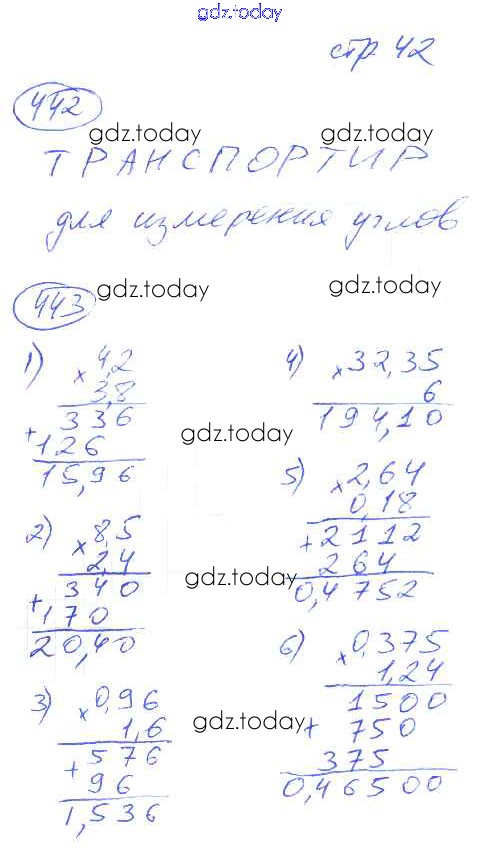 gdz.today
стр 42
442
gdz.today gdz.today
ТРАНСПОРТИР
для измерения углов
443 gdz.today gdz.today
1) × 4,2
3,8
336
+ 126
15,96
gdz.today
2) × 8,5
2,4
340
+ 170
20,40
gdz.today
3) × 0,96
1,6
+ 576
96
1,536
gdz.today
4) × 32,35
6
194,10
gdz.today
5) × 2,64
0,18
+ 2112
264
0,4752
6) × 0,375
1,24
1500
+ 750
375
0,46500